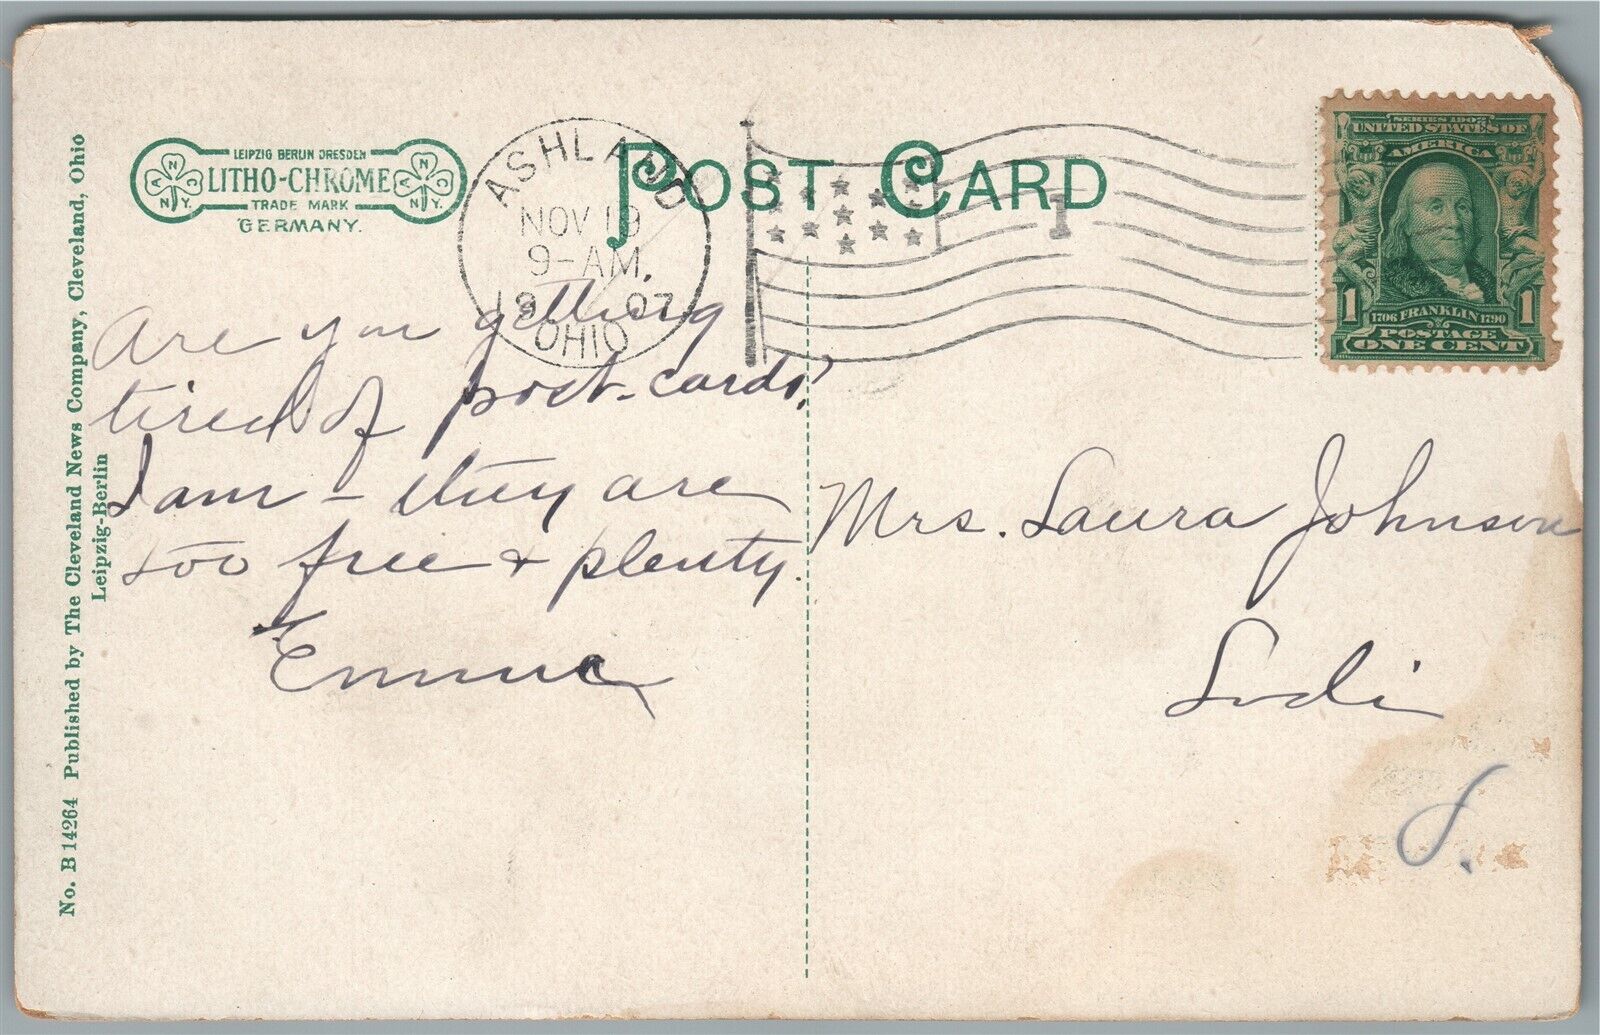 LEIPZIG BERLIN DRESDEN
LITHO-CHROME
TRADE MARK
GERMANY.
ANCNY.
ANCNY.
POST CARD
ASHLAND
NOV 19
9-AM.
1907
OHIO
1
SERIES 1902
UNITED STATES OF
AMERICA
1 1
1706 FRANKLIN 1790
POSTAGE
ONE CENT
No. B 14264 Published by The Cleveland News Company, Cleveland, Ohio
Leipzig-Berlin
Are you getting
tired of post-cards?
I am - they are
too free & plenty.
Emma
Mrs. Laura Johnson
Lodi
O.